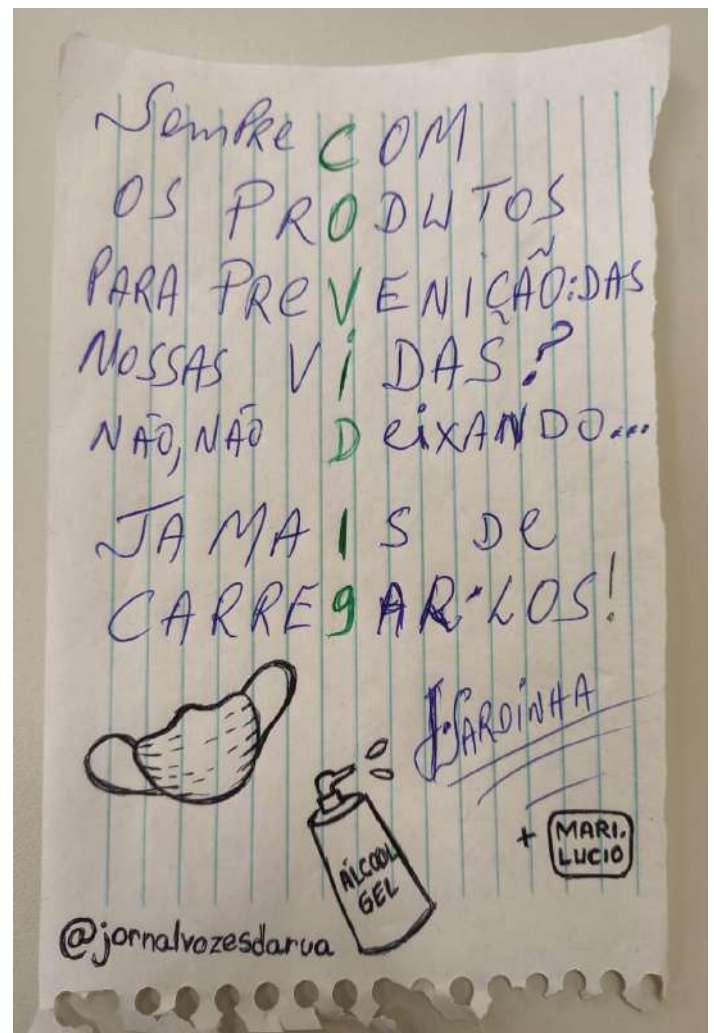 Sempre COM
OS PRODUTOS
PARA PREVENIÇÃO:DAS
NOSSAS VIDAS?
NÃO, NÃO DEIXANDO...
JAMAIS DE
CARRE9AR-LOS!
SARDINHA
+ MARI.
LUCIO
ÁLCOOL
GEL
@jornalvozesdarua